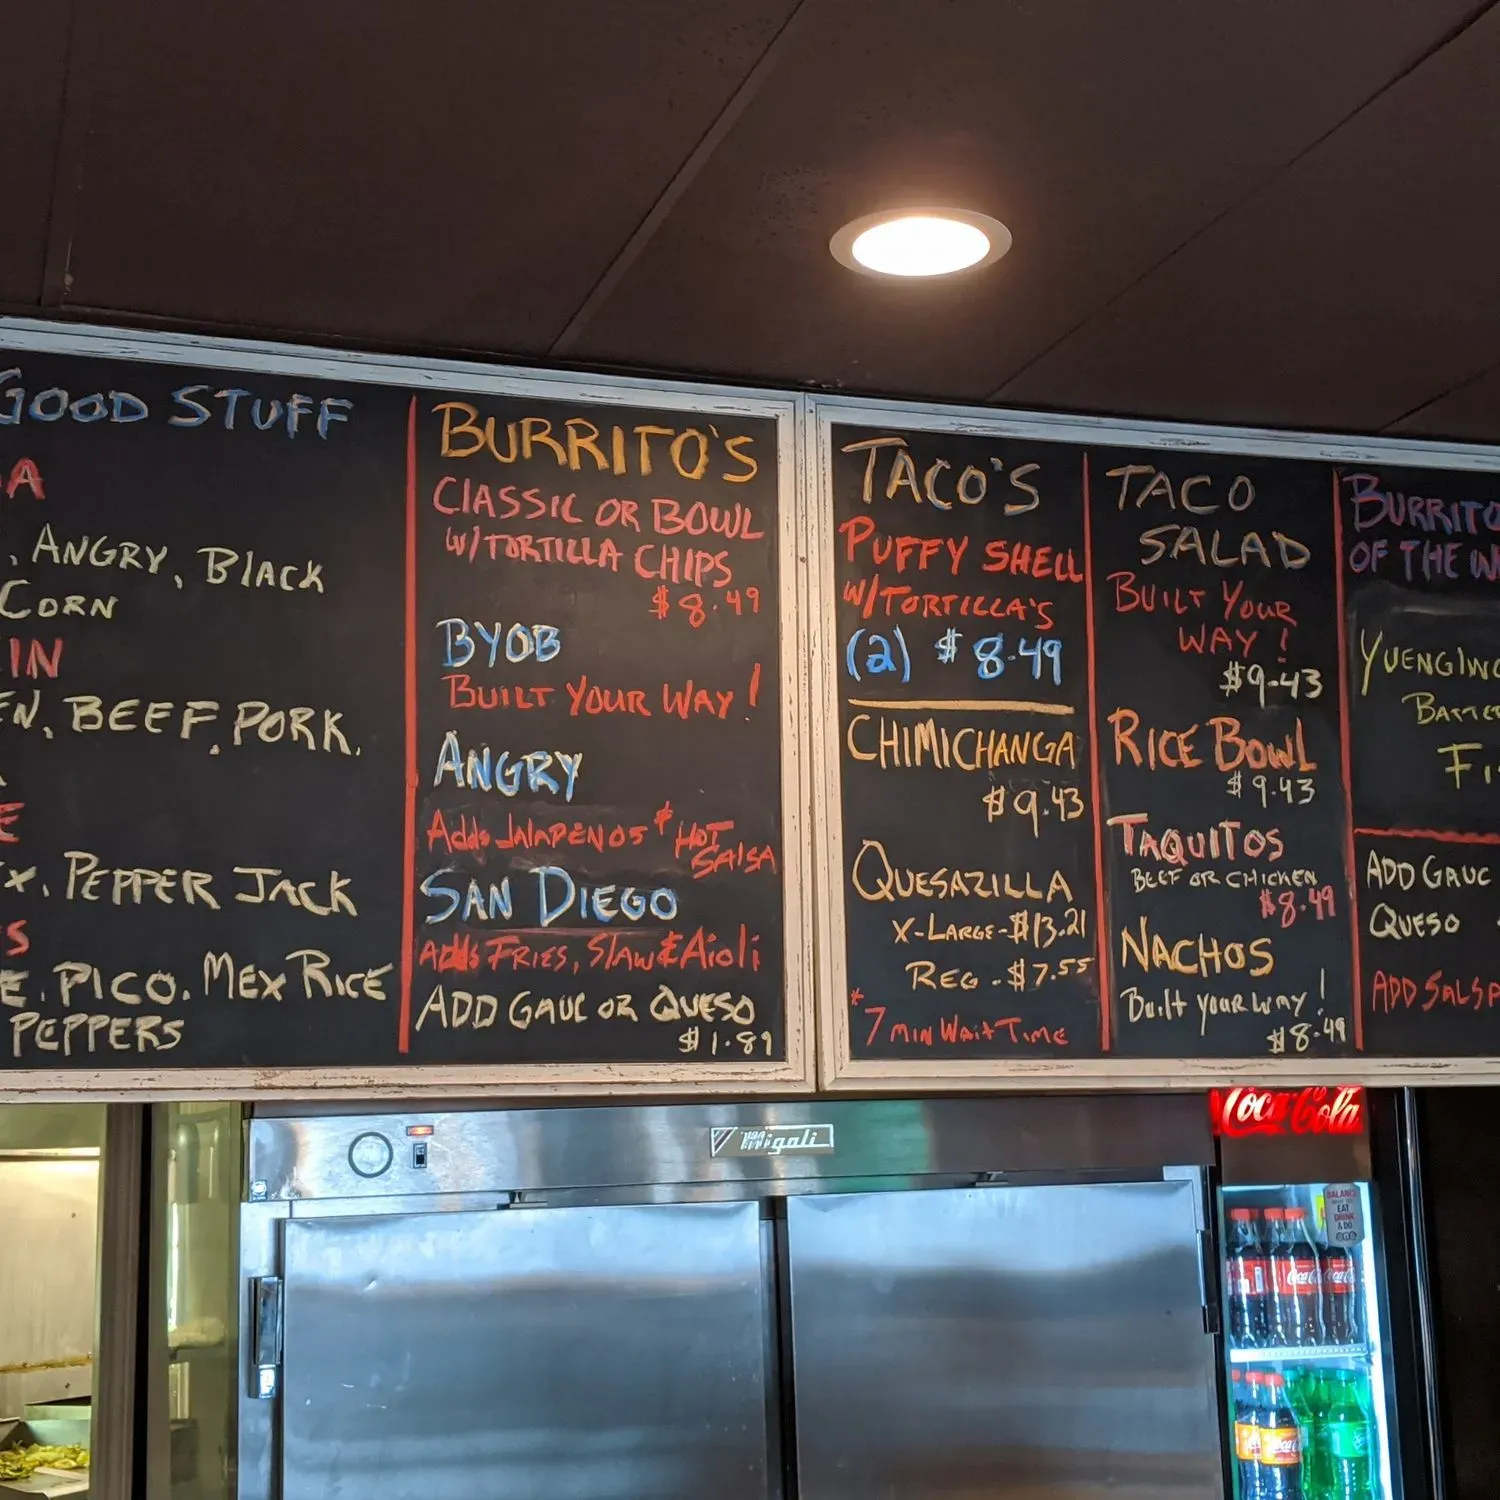 GOOD STUFF
, ANGRY, BLACK
CORN
BEEF, PORK,
PEPPER JACK
PICO, MEX RICE
PEPPERS
BURRITO'S
CLASSIC OR BOWL
W/TORTILLA CHIPS
$8.49
BYOB
BUILT YOUR WAY!
ANGRY
Adds JALAPENOS & HOT
SALSA
SAN DIEGO
Adds FRIES, SLAW & Aioli
ADD GAUC OR QUESO
$1.89
TACO'S
PUFFY SHELL
W/TORTILLA'S
(2) $8.49
CHIMICHANGA
$9.43
QUESAZILLA
X-LARGE-$13.21
REG.-$7.55
* 7 MIN WAIT TIME
TACO
SALAD
BUILT YOUR
WAY!
$9.43
RICE BOWL
$9.43
TAQUITOS
BEEF OR CHICKEN
$8.49
NACHOS
Built your way!
$8.49
BURRITO
OF THE
YUENGLING
ADD GAUC
QUESO
ADD SALSA
migali
Coca-Cola
BALANCE
EAT
DRINK
& DO
Coca-Cola